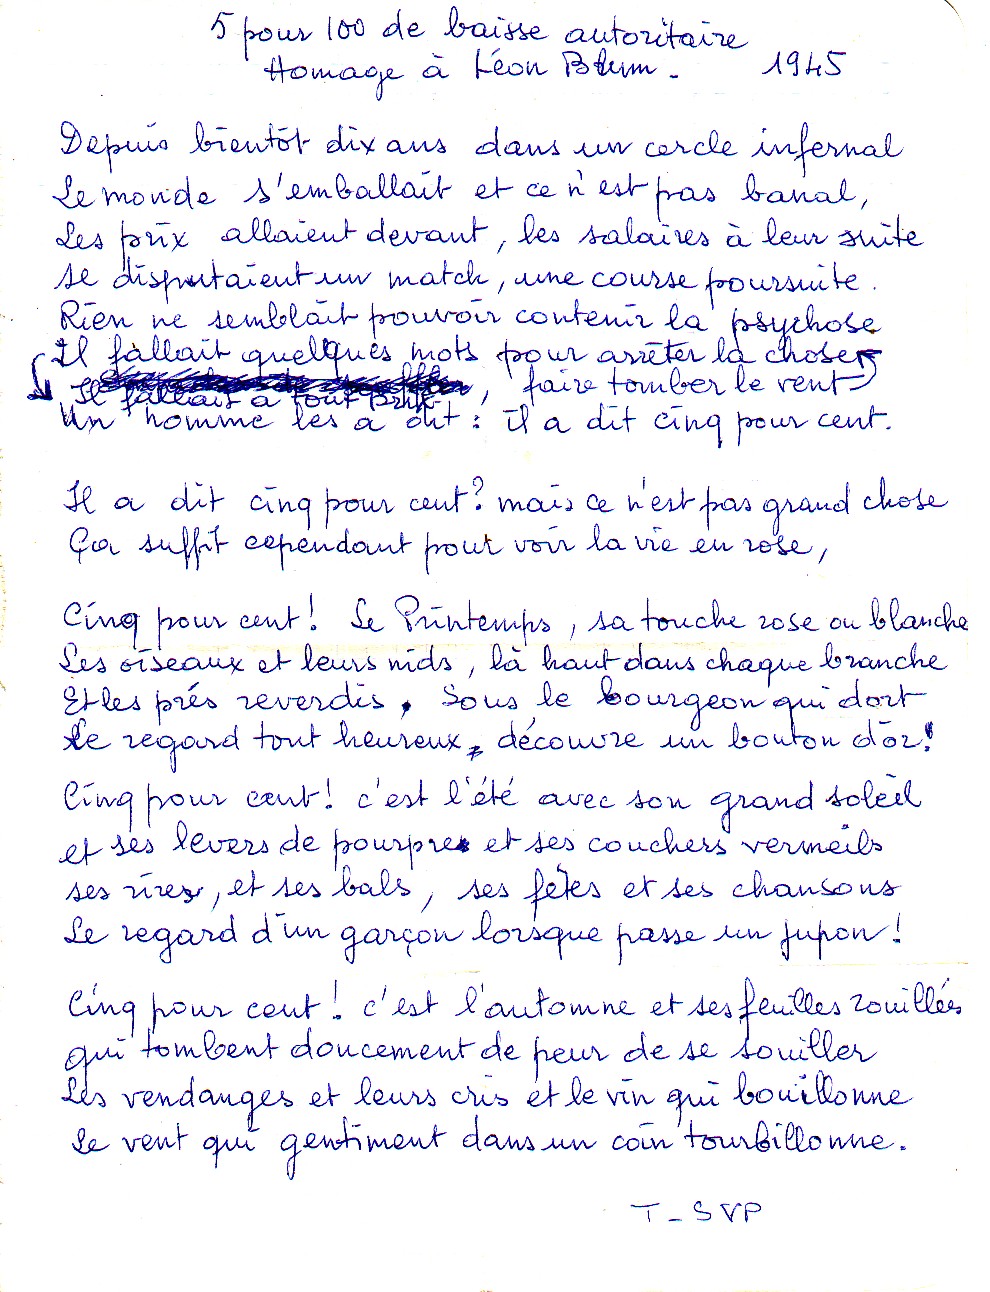 5 pour 100 de baisse autoritaire
Homage à Léon Blum - 1945
Depuis bientôt dix ans dans un cercle infernal
Le monde s'emballait et ce n'est pas banal,
Les prix allaient devant, les salaires à leur suite
se disputaient un match, une course poursuite.
Rien ne semblait pouvoir contenir la psychose
Il fallait quelques mots pour arrêter la chose
Il fallait à tout prix, faire tomber le vent
Un homme les a dit : il a dit cinq pour cent.
Il a dit cinq pour cent? mais ce n'est pas grand chose
Ça suffit cependant pour voir la vie en rose,
Cinq pour cent! Le Printemps, sa touche rose ou blanche
Les oiseaux et leurs nids, là haut dans chaque branche
Et les prés reverdis, Sous le bourgeon qui dort
Le regard tout heureux, découvre un bouton d'or!
Cinq pour cent! c'est l'été avec son grand soleil
et ses levers de pourpre et ses couchers vermeils
ses rires, et ses bals, ses fêtes et ses chansons
Le regard d'un garçon lorsque passe un jupon!
Cinq pour cent! c'est l'automne et ses feuilles rouillées
qui tombent doucement de peur de se souiller
Les vendanges et leurs cris et le vin qui bouillonne
Le vent qui gentiment dans un coin tourbillonne.
T-SVP